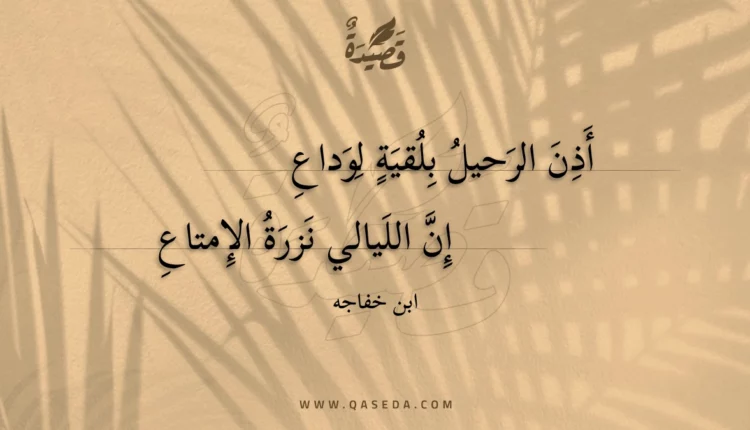 قَصِيدَةٌ
أَذِنَ الرَحيلُ بِلُقيَةٍ لِوَداعِ
إِنَّ اللَيالي نَزرَةُ الإِمتاعِ
ابن خفاجه
WWW.QASEDA.COM